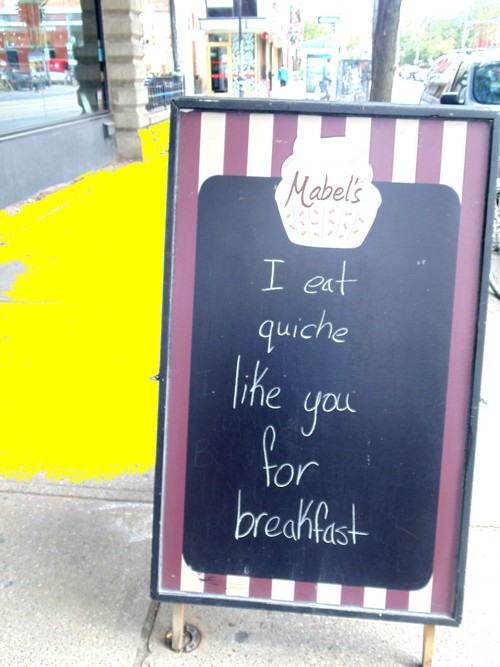 Mabel's
I eat
quiche
like you
for
breakfast